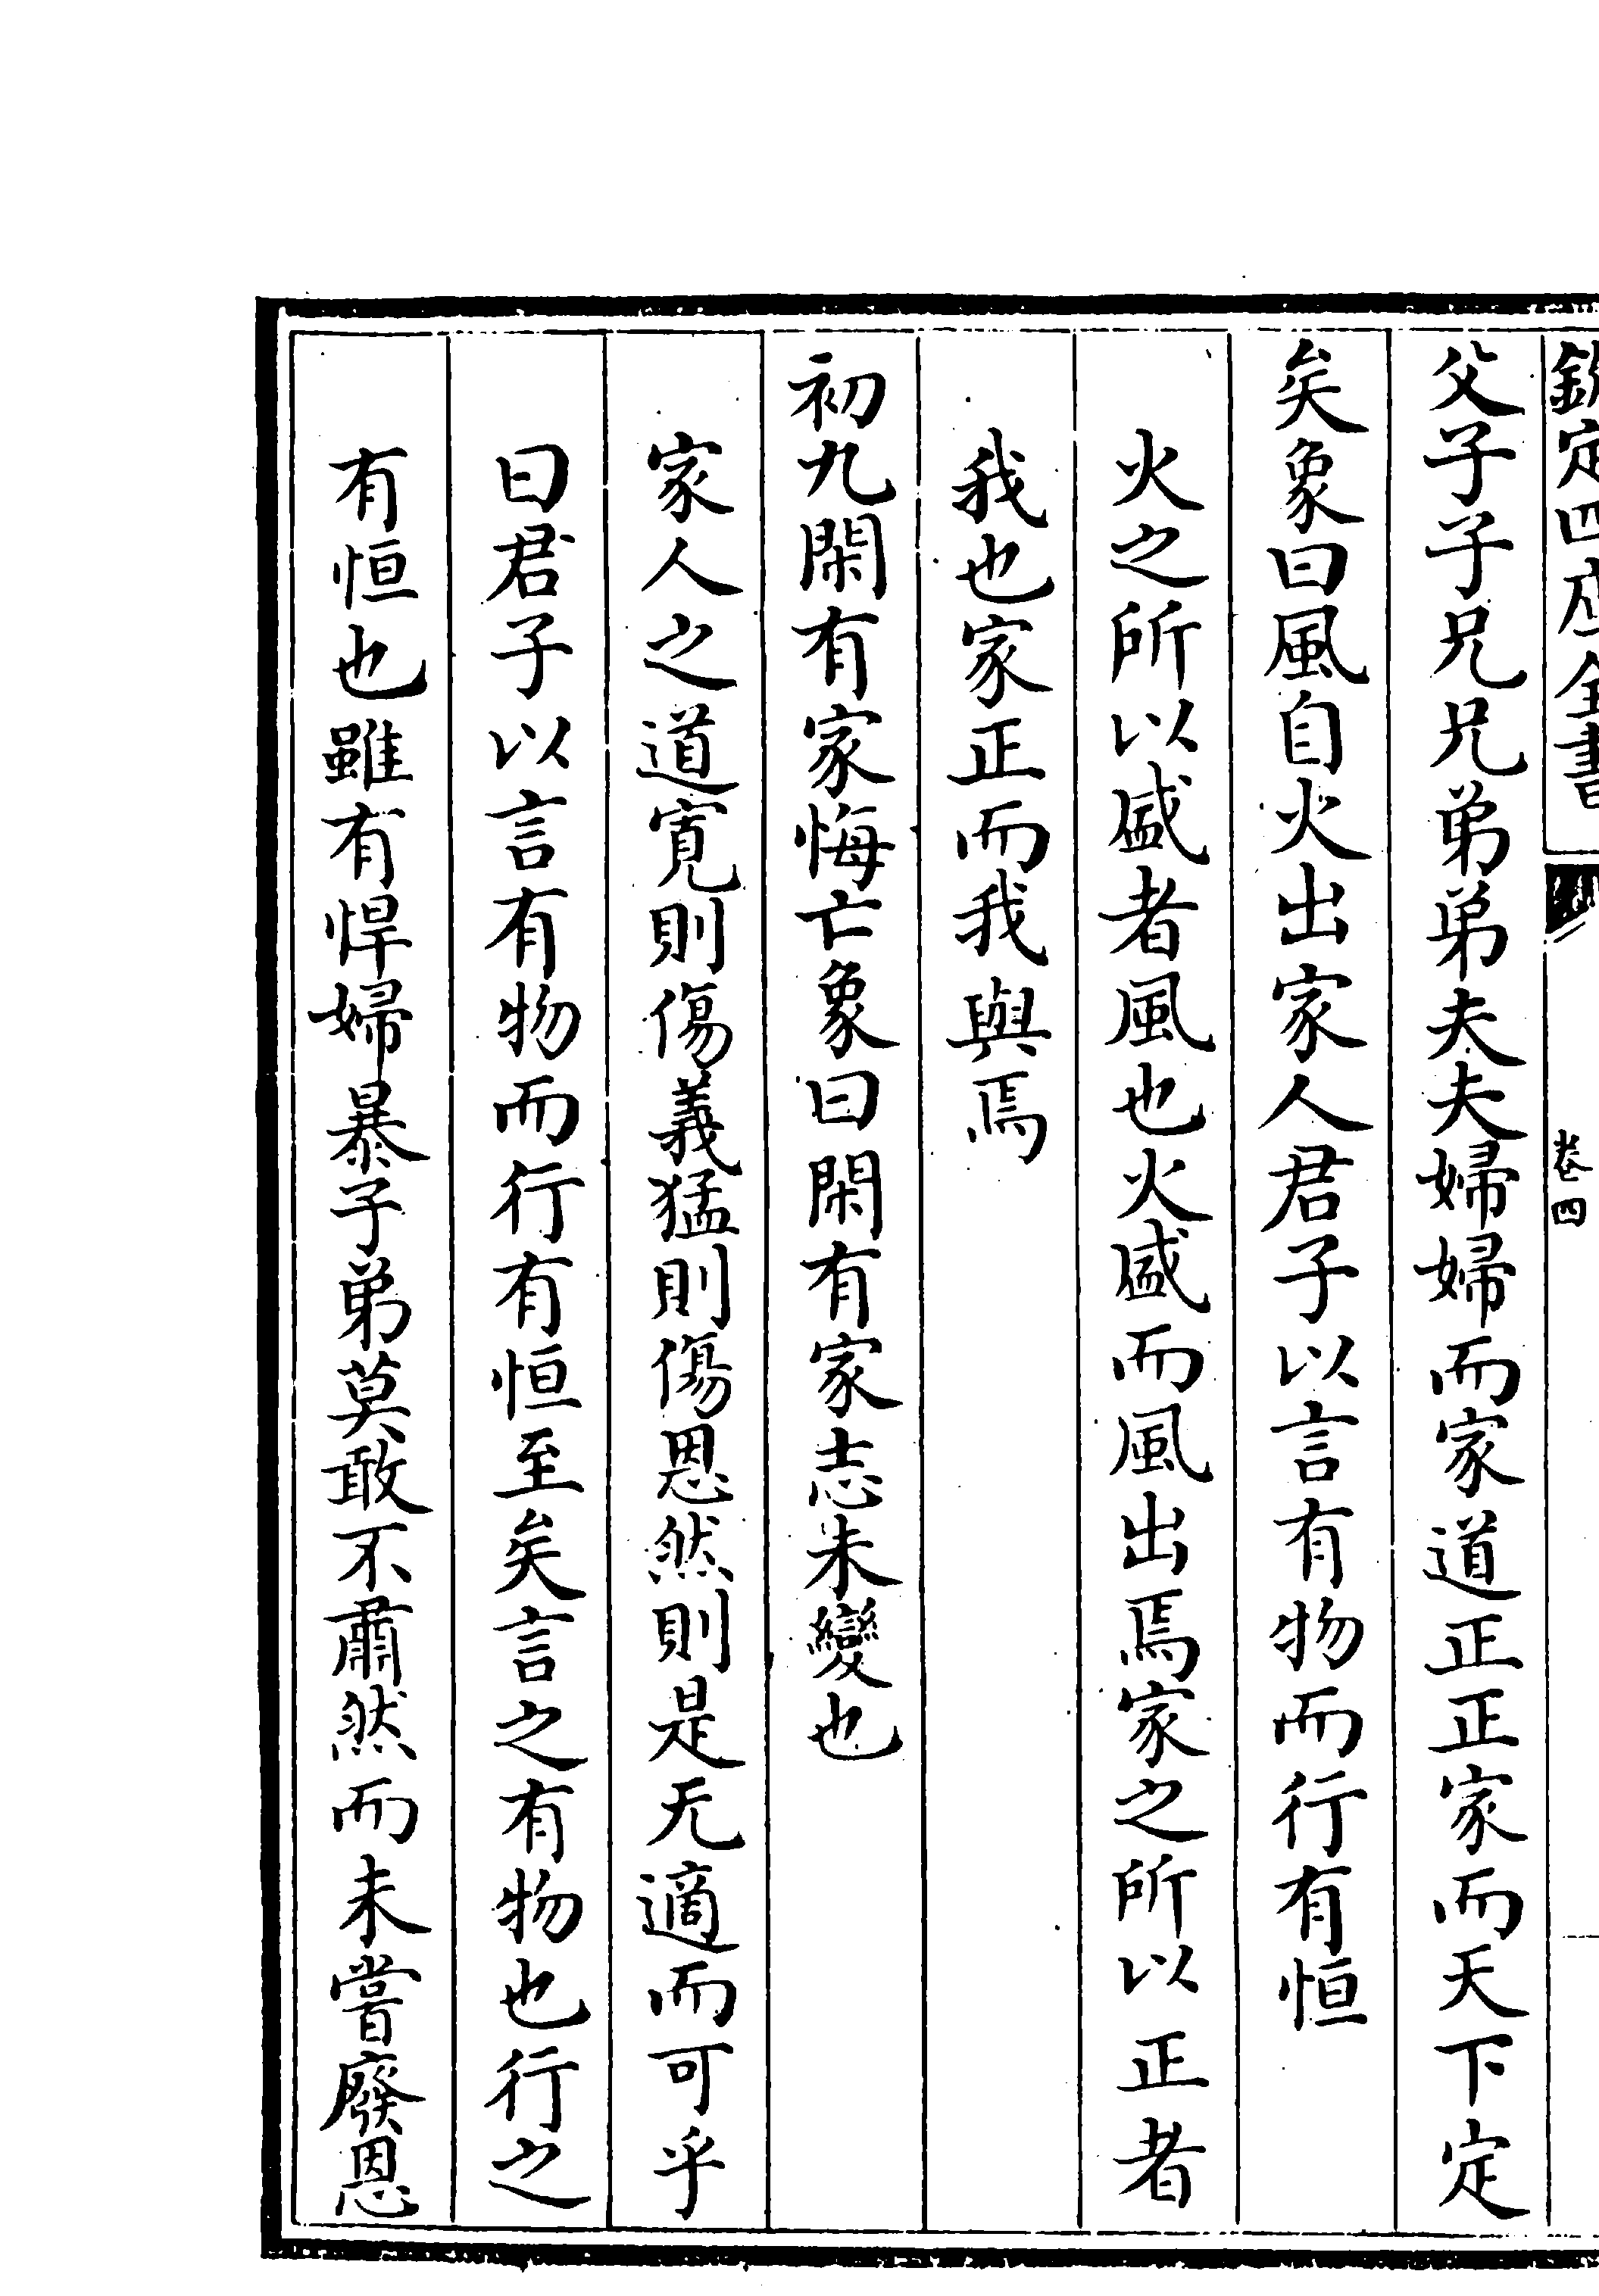 欽定四庫全書
卷四
父子子兄兄弟弟夫夫婦婦而家道正正家而天下定
矣象曰風自火出家人君子以言有物而行有恒
火之所以盛者風也火盛而風出焉家之所以正者
我也家正而我與焉
初九閑有家悔亡象曰閑有家志未變也
家人之道寛則傷義猛則傷恩然則是无適而可乎
曰君子以言有物而行有恒至矣言之有物也行之
有恒也雖有悍婦暴子弟莫敢不肅然而未嘗廢恩